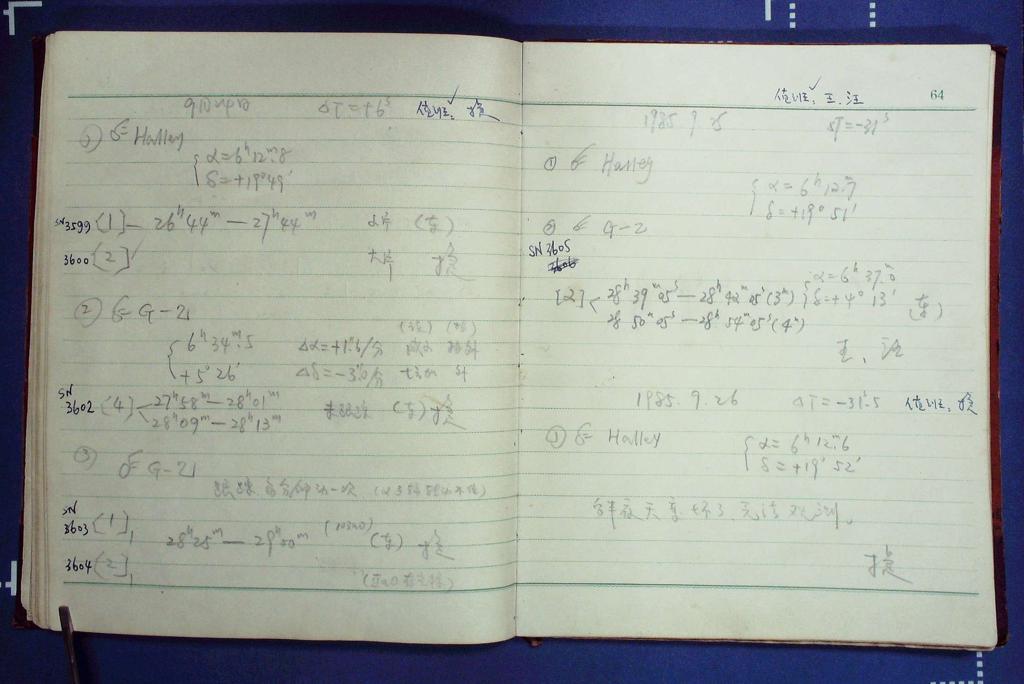 9月24日 ΔT=+6ˢ 值班:
① ☄ Halley
α=6ʰ12ᵐ.8
δ=+19°49′
SN3599 [1] 26ʰ44ᵐ—27ʰ44ᵐ (东)
3600 [2] 大片
② ☄ G-Z
6ʰ34ᵐ.5 Δα=+1ˢ.6/分
+5°26′
SN
3602 [4] 27ʰ58ᵐ—28ʰ01ᵐ 未跟踪 (东)
28ʰ09ᵐ—28ʰ13ᵐ
③ ☄ G-Z
跟踪 每分钟动一次
SN
3603 [1] 28ʰ25ᵐ—29ʰ00ᵐ (东)
3604 [2]
值班: 王、汪 64
1985.9.25 ΔT=-31ˢ
① ☄ Halley
α=6ʰ12ᵐ.7
δ=+19°51′
② ☄ G-Z
SN3605
α=6ʰ37ᵐ.0
[2] 28ʰ39ᵐ05ˢ—28ʰ42ᵐ05ˢ(3ᵐ) δ=+4°13′ (东)
28 50ᵐ05ˢ—28ʰ54ᵐ05ˢ(4ᵐ)
王、汪
1985.9.26 ΔT=-31ˢ.5 值班:
① ☄ Halley
α=6ʰ12ᵐ.6
δ=+19°52′
半夜天变坏了,无法观测。